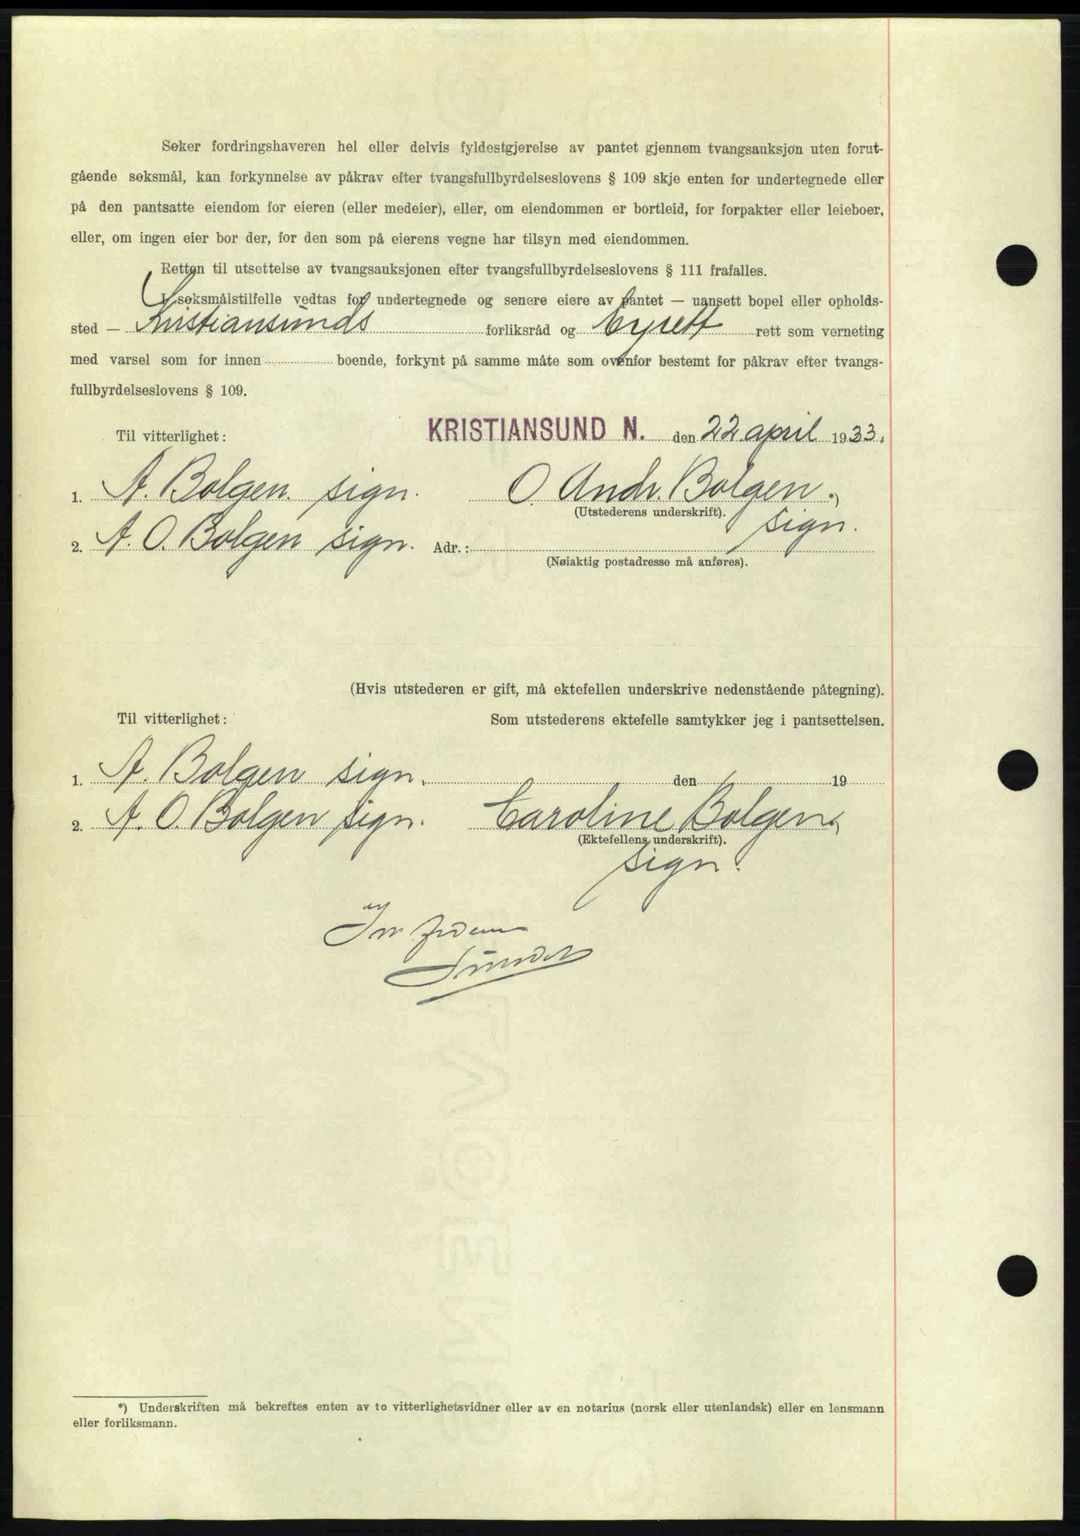 Søker fordringshaveren hel eller delvis fyldestgjørelse av pantet gjennem tvangsauksjon uten forut-
gående søksmål, kan forkynnelse av påkrav efter tvangsfullbyrdelseslovens § 109 skje enten for undertegnede eller
på den pantsatte eiendom for eieren (eller medeier), eller, om eiendommen er bortleid, for forpakter eller leieboer,
eller, om ingen eier bor der, for den som på eierens vegne har tilsyn med eiendommen.
Retten til utsettelse av tvangsauksjonen efter tvangsfullbyrdelseslovens § 111 frafalles.
I søksmålstilfelle vedtas for undertegnede og senere eiere av pantet — uansett bopel eller opholds-
sted — Kristiansunds forliksråd og Byrett rett som verneting
med varsel som for innen boende, forkynt på samme måte som ovenfor bestemt for påkrav efter tvangs-
fullbyrdelseslovens § 109.
Til vitterlighet: KRISTIANSUND N. den 22 april 1933.
1. A. Bolgen sign. O. Andr. Bolgen.
(Utstederens underskrift). sign.
2. A. O. Bolgen sign. Adr.:
(Nøiaktig postadresse må anføres).
(Hvis utstederen er gift, må ektefellen underskrive nedenstående påtegning).
Til vitterlighet: Som utstederens ektefelle samtykker jeg i pantsettelsen.
1. A. Bolgen sign. den / 19
2. A. O. Bolgen sign. Caroline Bolgen.
(Ektefellens underskrift).
sign.
*) Underskriften må bekreftes enten av to vitterlighetsvidner eller av en notarius (norsk eller utenlandsk) eller en lensmann
eller forliksmann.